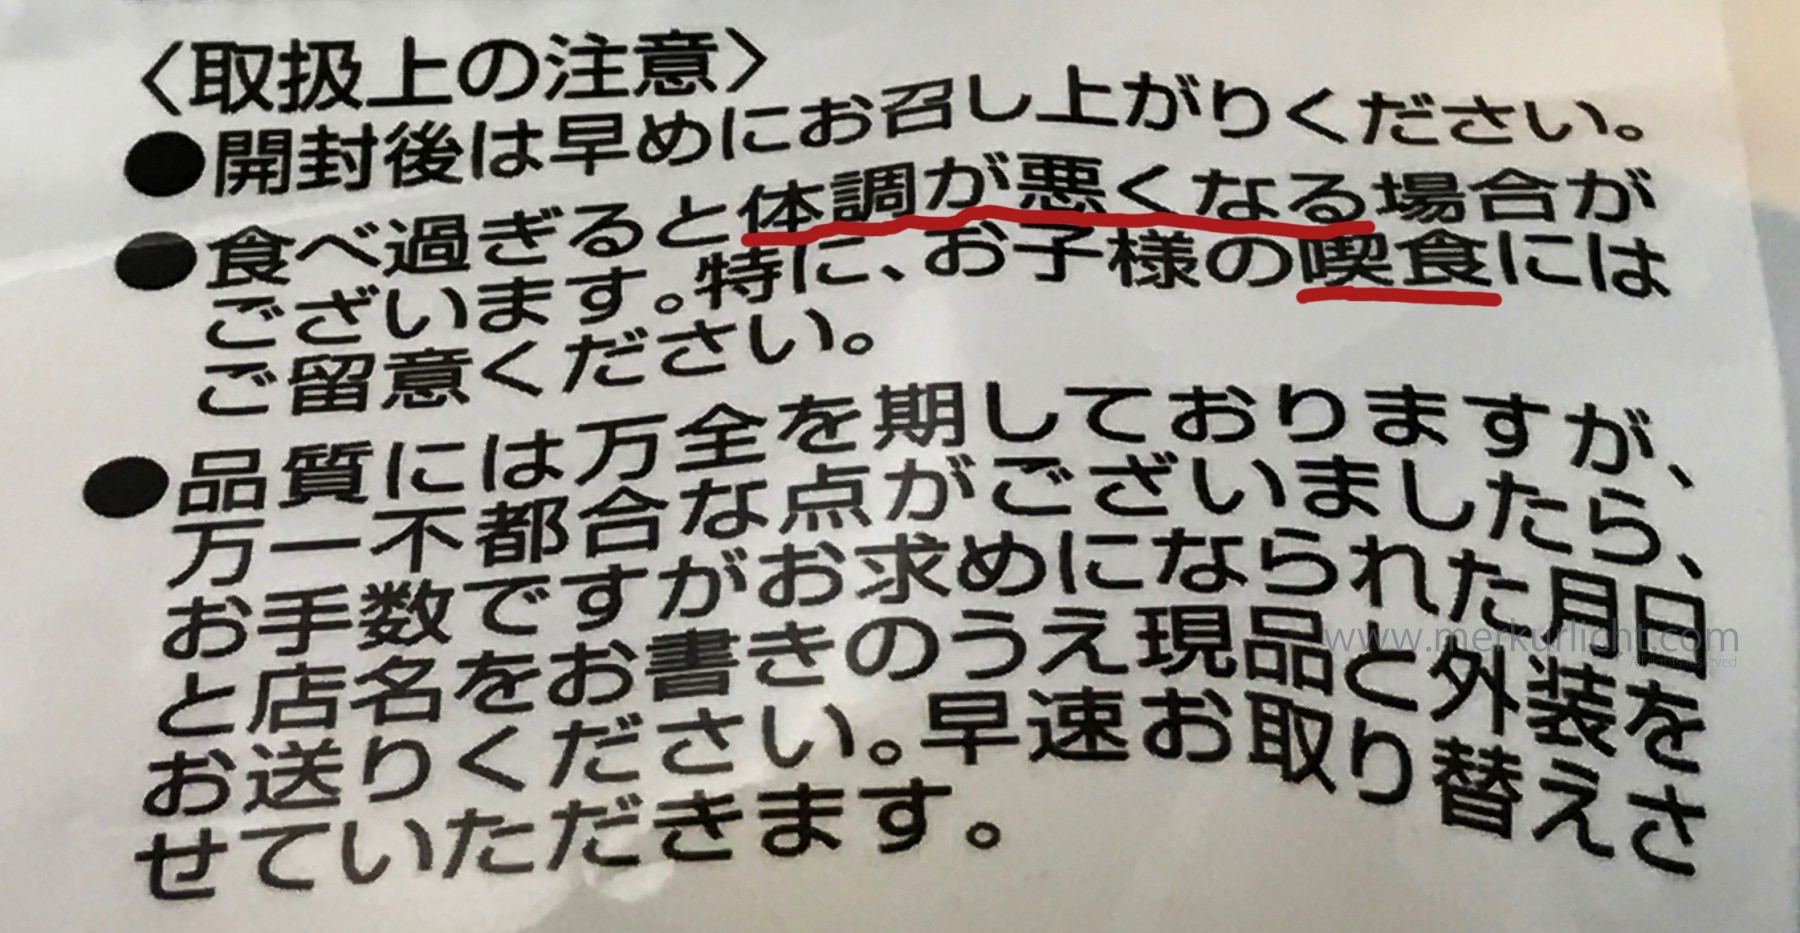 〈取扱上の注意〉
●開封後は早めにお召し上がりください。
●食べ過ぎると体調が悪くなる場合が
ございます。特に、お子様の喫食には
ご留意ください。
●品質には万全を期しておりますが、
万一不都合な点がございましたら、
お手数ですがお求めになられた月日
と店名をお書きのうえ現品と外装を
お送りください。早速お取り替えさ
せていただきます。
www.merkurlicht.com